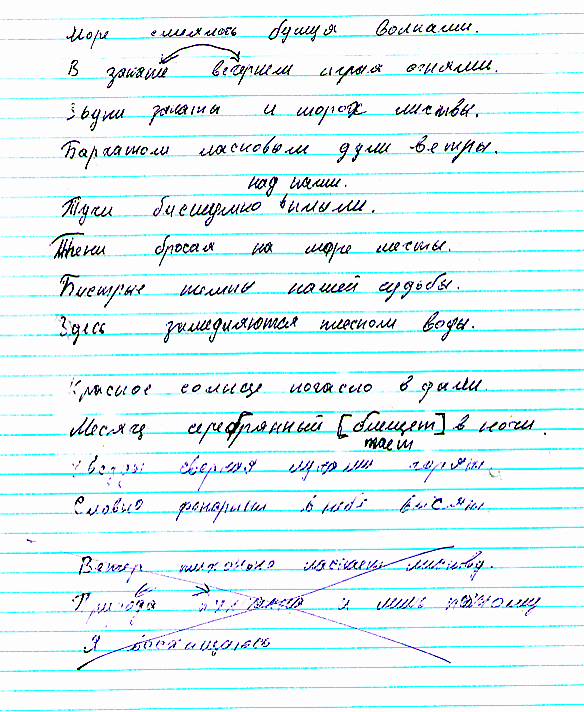 Море смеялось бушуя волнами.
В закате вечернем играя огнями.
Звуки заката и шорох листвы.
Бархатом ласковым дули ветры.
над нами.
Тучи бисшумно выныли.
Тени бросая на море мечты.
Быстрые темпы нашей судьбы.
Здесь замедляются плеском воды.
Красное солнце погасло в дали
Месяц серебрянный [блещет] в ночи.
тает
Звезды сверкая лучами горят
Словно фонарики в небе висят
Ветер тихонько ласкает листву.
Природа и лишь
Я восхищаюсь